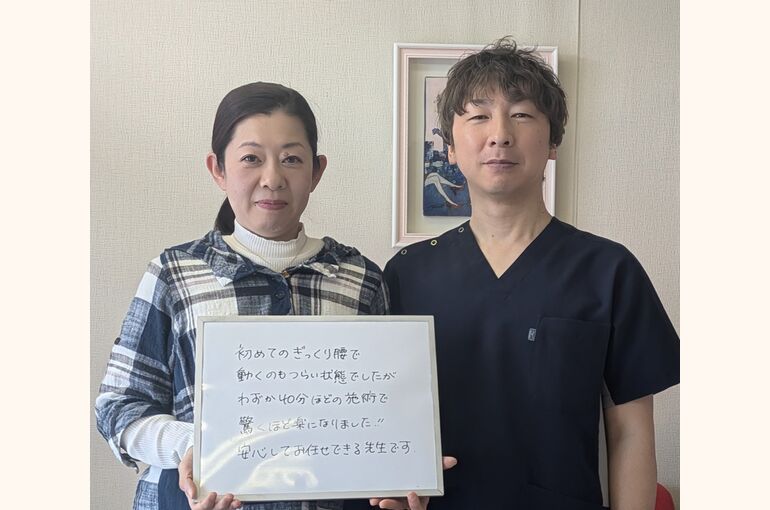 初めてのぎっくり腰で
動くのもつらい状態でしたが
わずか40分ほどの施術で
驚くほど楽になりました!!
安心してお任せできる先生です。